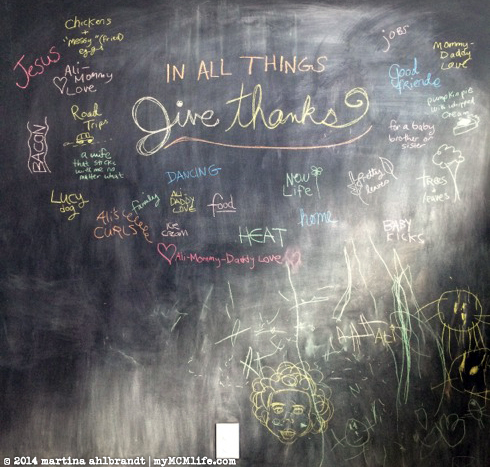 Chickens
+
"Messy" (fried)
eggs
Jesus
Ali-
Mommy
Love
Road
Trips
BACON
a wife
that sticks
with me no
matter what
Lucy
dog
Ali's
CURLS
family
IN ALL THINGS
Give thanks
DANCING
ALI-
DADDY
LOVE
food
ice
cream
HEAT
Ali-Mommy-Daddy Love
New
Life!
home
jobs
Good
friends
Mommy-
Daddy
Love
pumpkin pie
with whipped
cream
for a baby
brother or
sister
Pretty
leaves
Trees
leaves
BABY
KICKS
© 2014 martina ahlbrandt | myMCMlife.com